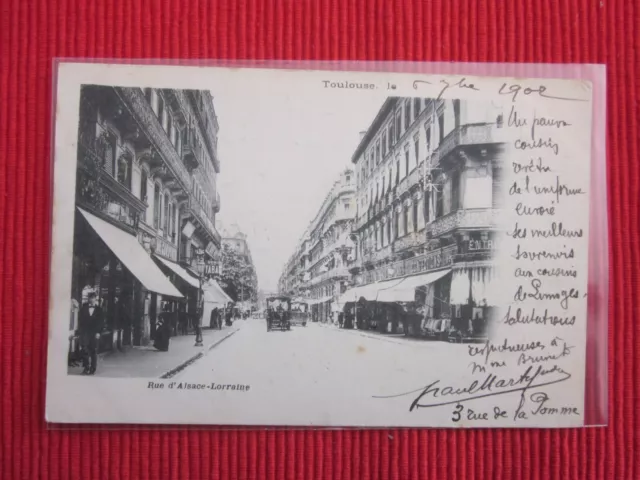 Toulouse, le 6 7bre 1902
Un pauvre
cousin
revêtu
de l'uniforme
envoie
ses meilleurs
souvenirs
aux cousins
de Limoges
Salutations
respectueuses à
Mme Brunet
Paul Marty
3 rue de la Pomme
TABAC
ENTR
Rue d'Alsace-Lorraine